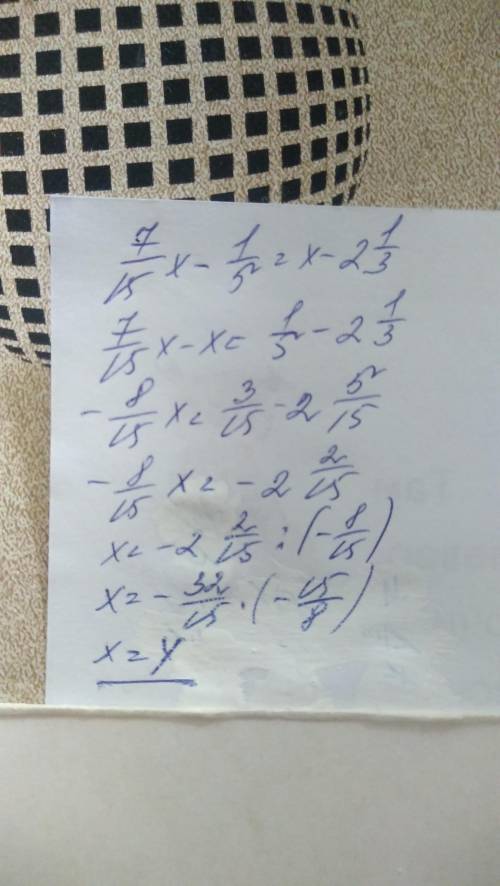 7/15 x - 1/5 = x - 2 1/3
7/15 x - x = 1/5 - 2 1/3
- 8/15 x = 3/15 - 2 5/15
- 8/15 x = - 2 2/15
x = - 2 2/15 : (- 8/15)
x = - 32/15 · (- 15/8)
x = 4